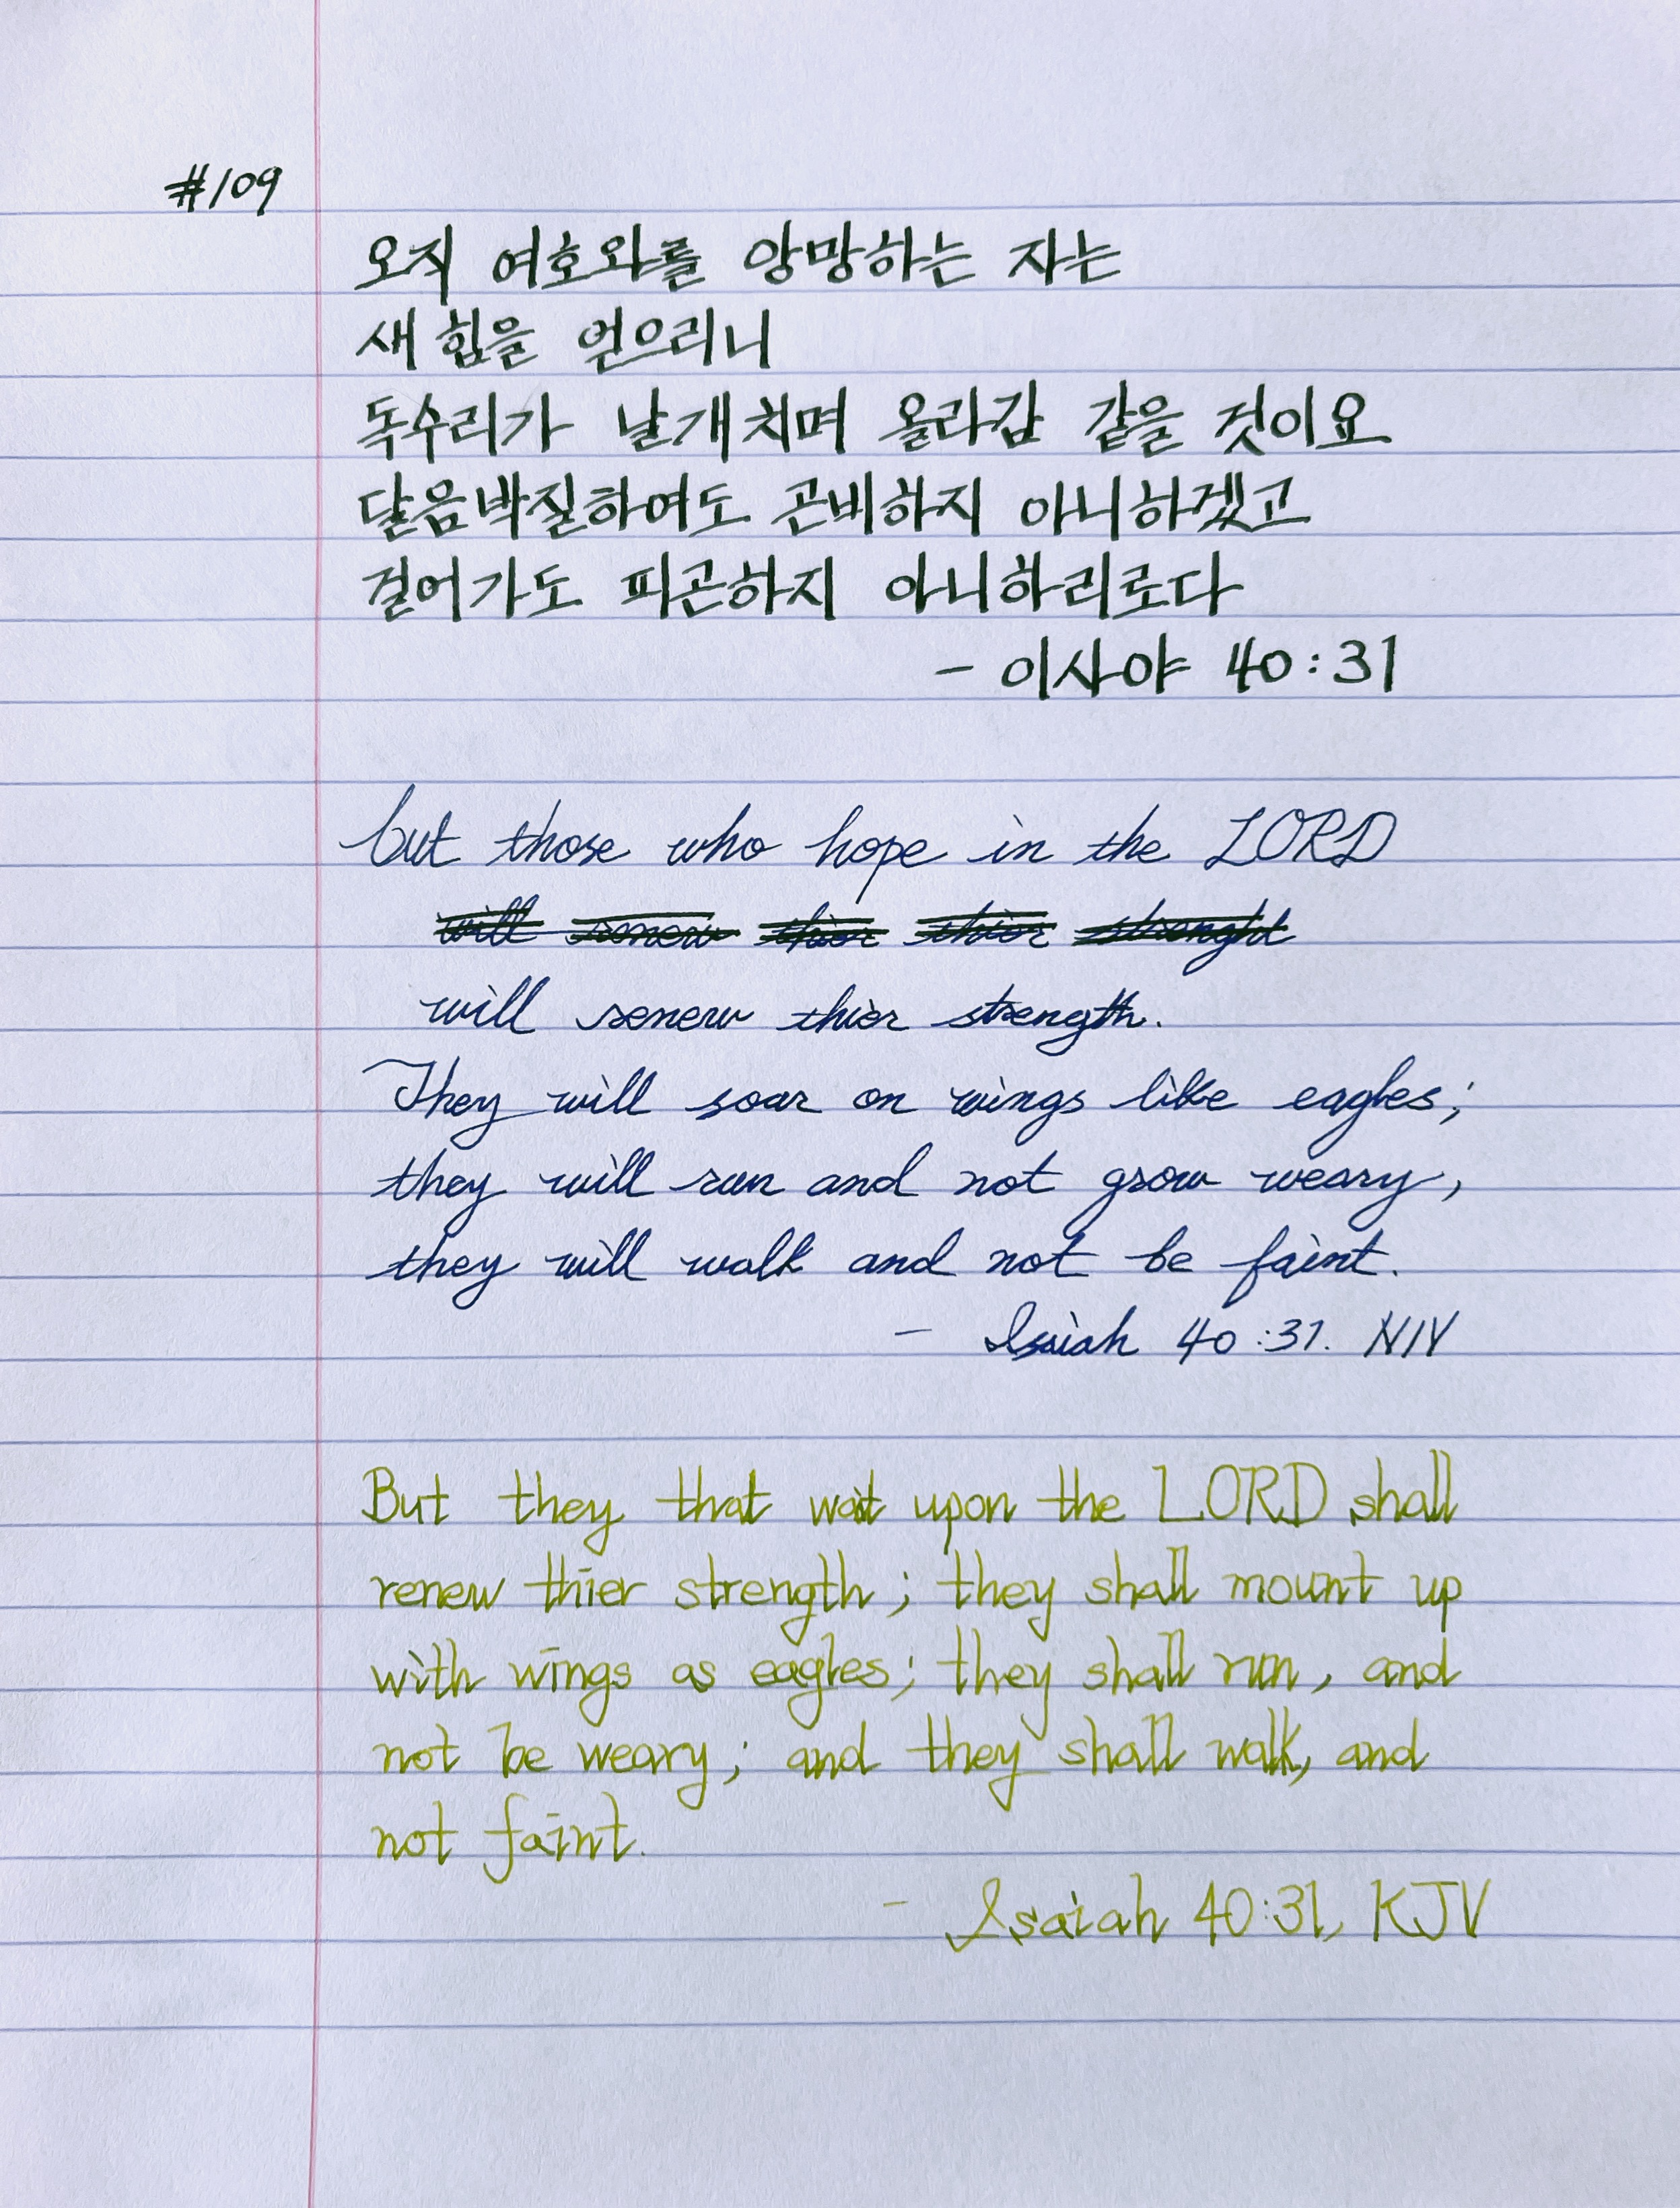 #109
오직 여호와를 앙망하는 자는
새 힘을 얻으리니
독수리가 날개치며 올라감 같을 것이요
달음박질하여도 곤비하지 아니하겠고
걸어가도 피곤하지 아니하리로다
- 이사야 40:31
but those who hope in the LORD
will renew thier thier strenght
will renew thier strength.
They will soar on wings like eagles;
they will run and not grow weary,
they will walk and not be faint.
- Isaiah 40:31. NIV
But they that wait upon the LORD shall
renew thier strength; they shall mount up
with wings as eagles; they shall run, and
not be weary; and they shall walk, and
not faint.
- Isaiah 40:31, KJV